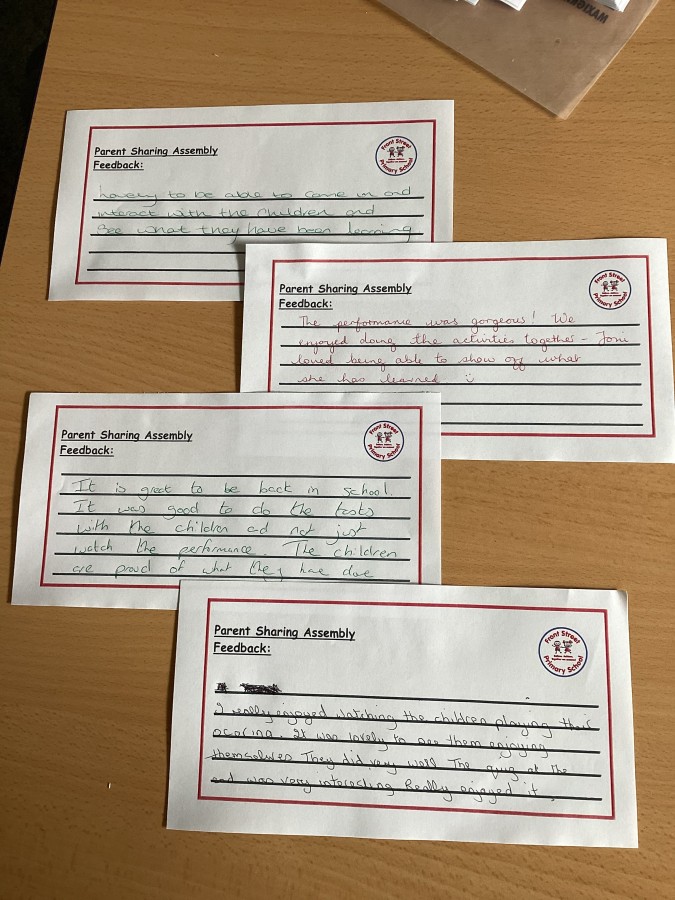 Parent Sharing Assembly
Feedback:
Front Street
Primary School
Lovely to be able to come in and
interact with the children and
see what they have been learning
Parent Sharing Assembly
Feedback:
Front Street
Primary School
The performance was gorgeous! We
enjoyed doing the activities together - Joni
loved being able to show off what
she has learned
Parent Sharing Assembly
Feedback:
Front Street
Primary School
It is great to be back in school.
It was good to do the tasks
with the children ad not just
watch the performance. The children
are proud of what they have done
Parent Sharing Assembly
Feedback:
Front Street
Primary School
I really enjoyed watching the children playing their
ocorina. It was lovely to see them enjoying
themselves They did very well The quiz at the
end was very interesting Really enjoyed it.